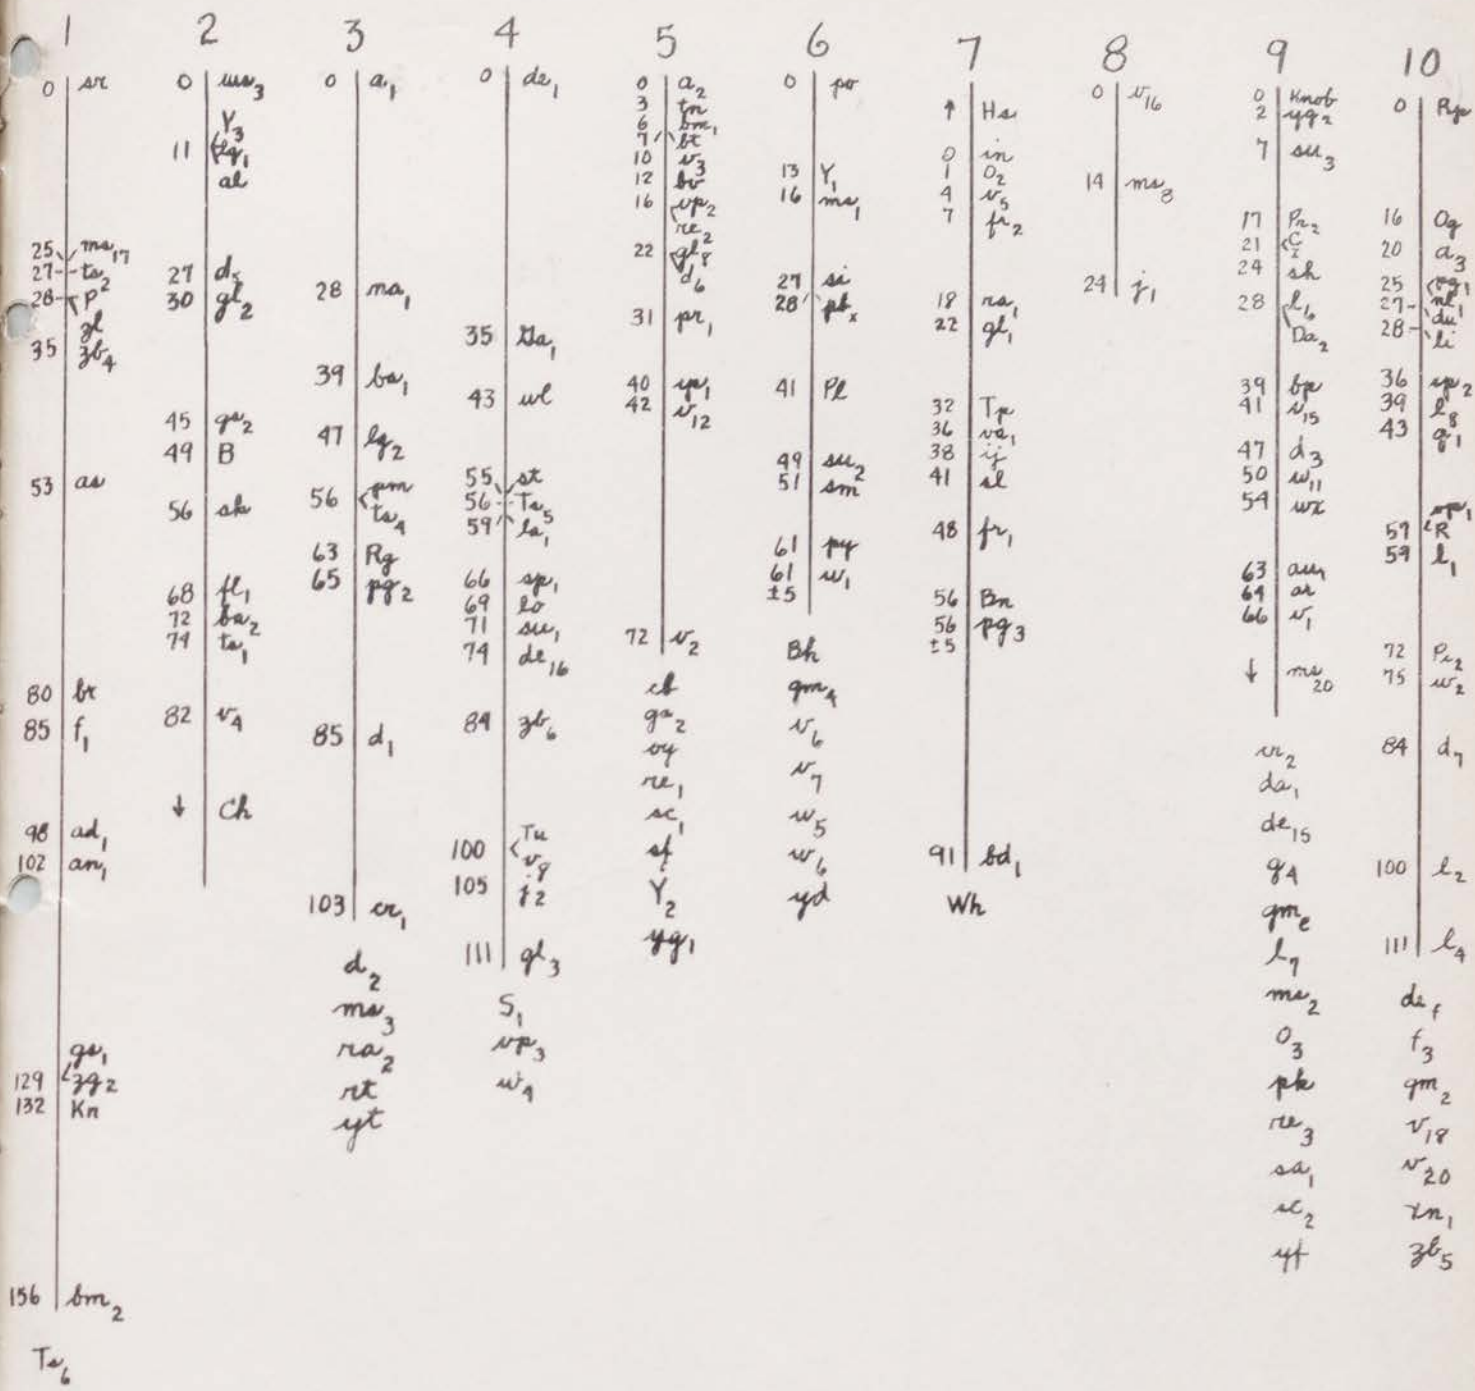 1
0 sr
25 ms17
27 ts2
28 P
gl
35 zb4
53 as
80 br
85 f1
98 ad1
102 an1
gs1
129 zg2
132 Kn
156 bm2
Ts6
2
0 ws3
Y3
11 lg1
al
27 d5
30 gl2
45 gs2
49 B
56 sk
68 fl1
72 ba2
74 ts1
82 v4
↓ Ch
3
0 a1
28 na1
39 ba1
47 lg2
56 pm
ts4
63 Rg
65 pg2
85 d1
103 cr1
d2
ms3
ra2
rt
yt
4
0 de1
35 Ga1
43 wl
55 st
56 Ts5
59 la1
66 sp1
69 lo
71 su1
74 de16
84 zb6
100 Tu
v8
105 j2
111 gl3
S1
vp3
w4
5
0 a2
3 tn
6 bm1
7 bt
10 v3
12 bv
16 vp2
re2
22 gl8
d6
31 pr1
40 yp1
42 v12
72 v2
cb
ga2
oy
re1
sc1
sf
Y2
yg1
6
0 po
13 Y1
16 ms1
27 si
28 pbx
41 Pl
49 su2
51 sm
61 py
61 w1
±5
Bh
gm4
v6
v7
w5
w6
yd
7
↑ Hs
0 in
1 O2
4 v5
7 fr2
18 ra1
22 gl1
32 Tp
36 va1
38 ij
41 sl
48 fr1
56 Bn
56 pg3
±5
91 bd1
Wh
8
0 v16
14 ms8
24 j1
9
0 Knob
2 yg2
7 su3
17 Pn2
21 C
I
24 sh
28 l6
Da2
39 bp
41 v15
47 d3
50 w11
54 wx
63 au1
64 ar
66 v1
↓ ms20
vr2
da1
de15
g4
gme
l7
ms2
O3
pk
re3
sa1
sc2
yf
10
0 Rp
16 Og
20 a3
25 og1
27 nl1
du
28 li
36 yp2
39 l8
43 g1
op1
57 R
59 l1
72 Pr2
75 w2
84 d7
100 l2
111 l4
def
f3
gm2
v18
v20
xn1
zb5